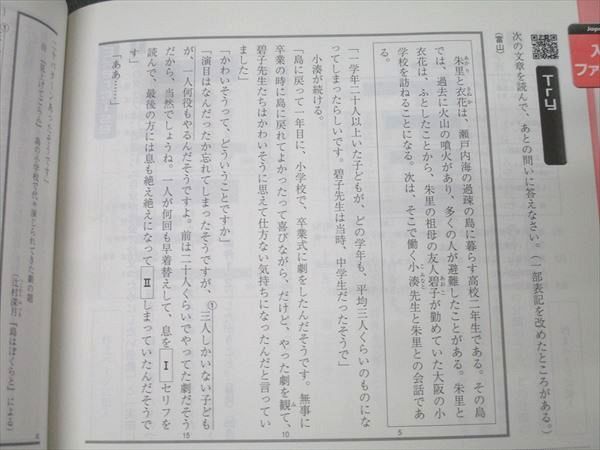 Try
次の文章を読んで、あとの問いに答えなさい。(一部表記を改めたところがある。)
(富山)
朱里と衣花は、瀬戸内海の過疎の島に暮らす高校二年生である。その島
では、過去に火山の噴火があり、多くの人が避難したことがある。朱里と
衣花は、ふとしたことから、朱里の祖母の友人碧子が勤めていた大阪の小
学校を訪ねることになる。次は、そこで働く小湊先生と朱里との会話であ
る。
「一学年二十人以上いた子どもが、どの学年も、平均三人くらいのものにな
ってしまったらしいです。碧子先生は当時、中学生だったそうで」
小湊が続ける。
「島に戻って一年目に、小学校で、卒業式に劇をしたんだそうです。無事に
卒業の時に島に戻れてよかったって喜びながら、だけど、やった劇を観て、
碧子先生たちはかわいそうに思えて仕方ない気持ちになったんだと言ってい
ました」
「かわいそうって、どういうことですか」
「演目はなんだったか忘れてしまったそうですが、①三人しかいない子ども
が、一人何役もやるんだそうですよ。前は二十人くらいでやってた劇だそう
だから、当然でしょうね。一人が何回も早着替えして、息を Ⅰ セリフを
読んで、最後の方には息も絶え絶えになって Ⅱ しまっていたんだそうで
す」
「ああ……」
5
10
15
島の小学校で代々演じられてきた劇の題
(辻村深月『島はぼくらと』による)